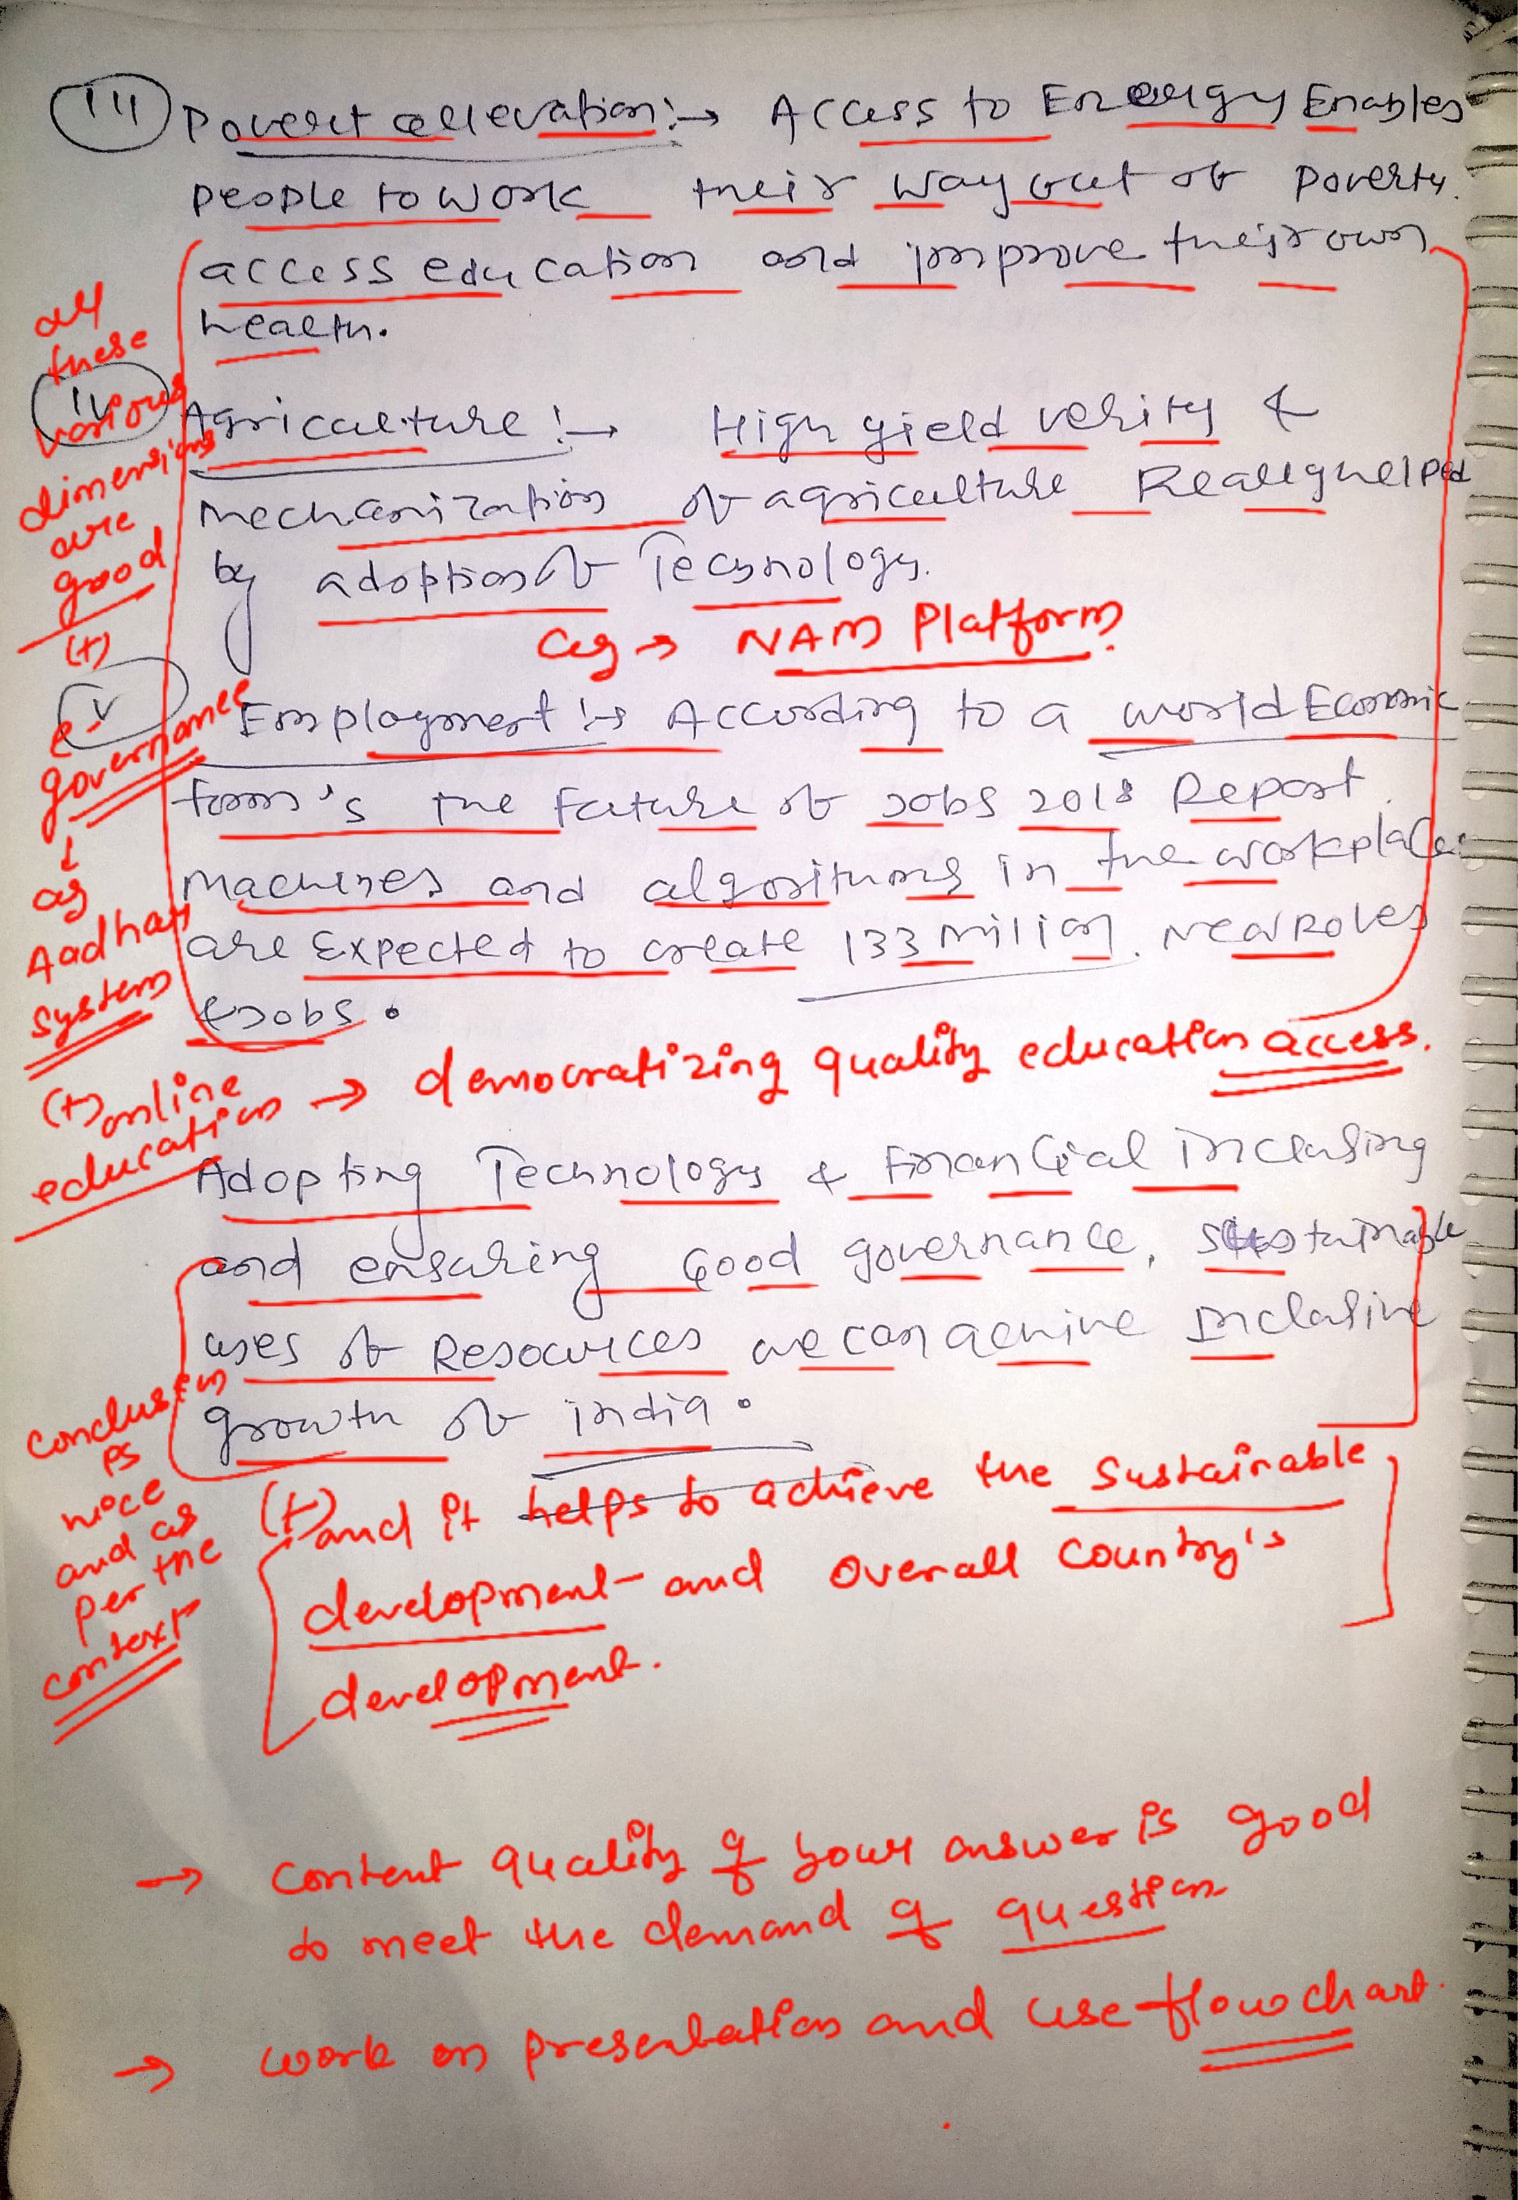 iii Povert allevation :→ Access to Energy Enables
people to work their way out of poverty.
access education and improve their own
health.
all
these
various
dimensions
are
good
iv Agriculture :→ High yield verity &
mechanization of agriculture Really helped
by adoption of Technology.
eg → NAM Platform
(+)
e-
governance
↓
eg
Aadhar
System
v Employment :→ According to a world Economic
form's The future of Jobs 2018 Report.
machines and algorithms in the workplace
are Expected to create 133 million. New Roles
& Jobs.
(+) online
education → democratizing quality education access.
Adopting Technology & Financial Inclusing
and ensuring Good governance, sustainable
uses of Resources we can achive Inclusive
growth of india.
conclusion
is
nice
and as
per the
context
(+) and it helps to achieve the Sustainable
development and Overall Country's
development.
→ Content quality of your answer is good
to meet the demand of question
→ work on presentation and use flowchart.